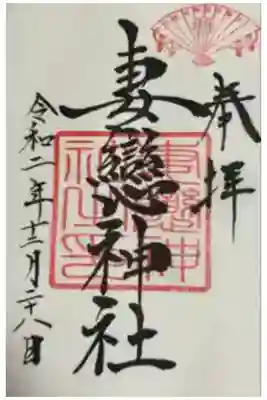 奉拝
妻戀神社
令和二年十二月二十八日